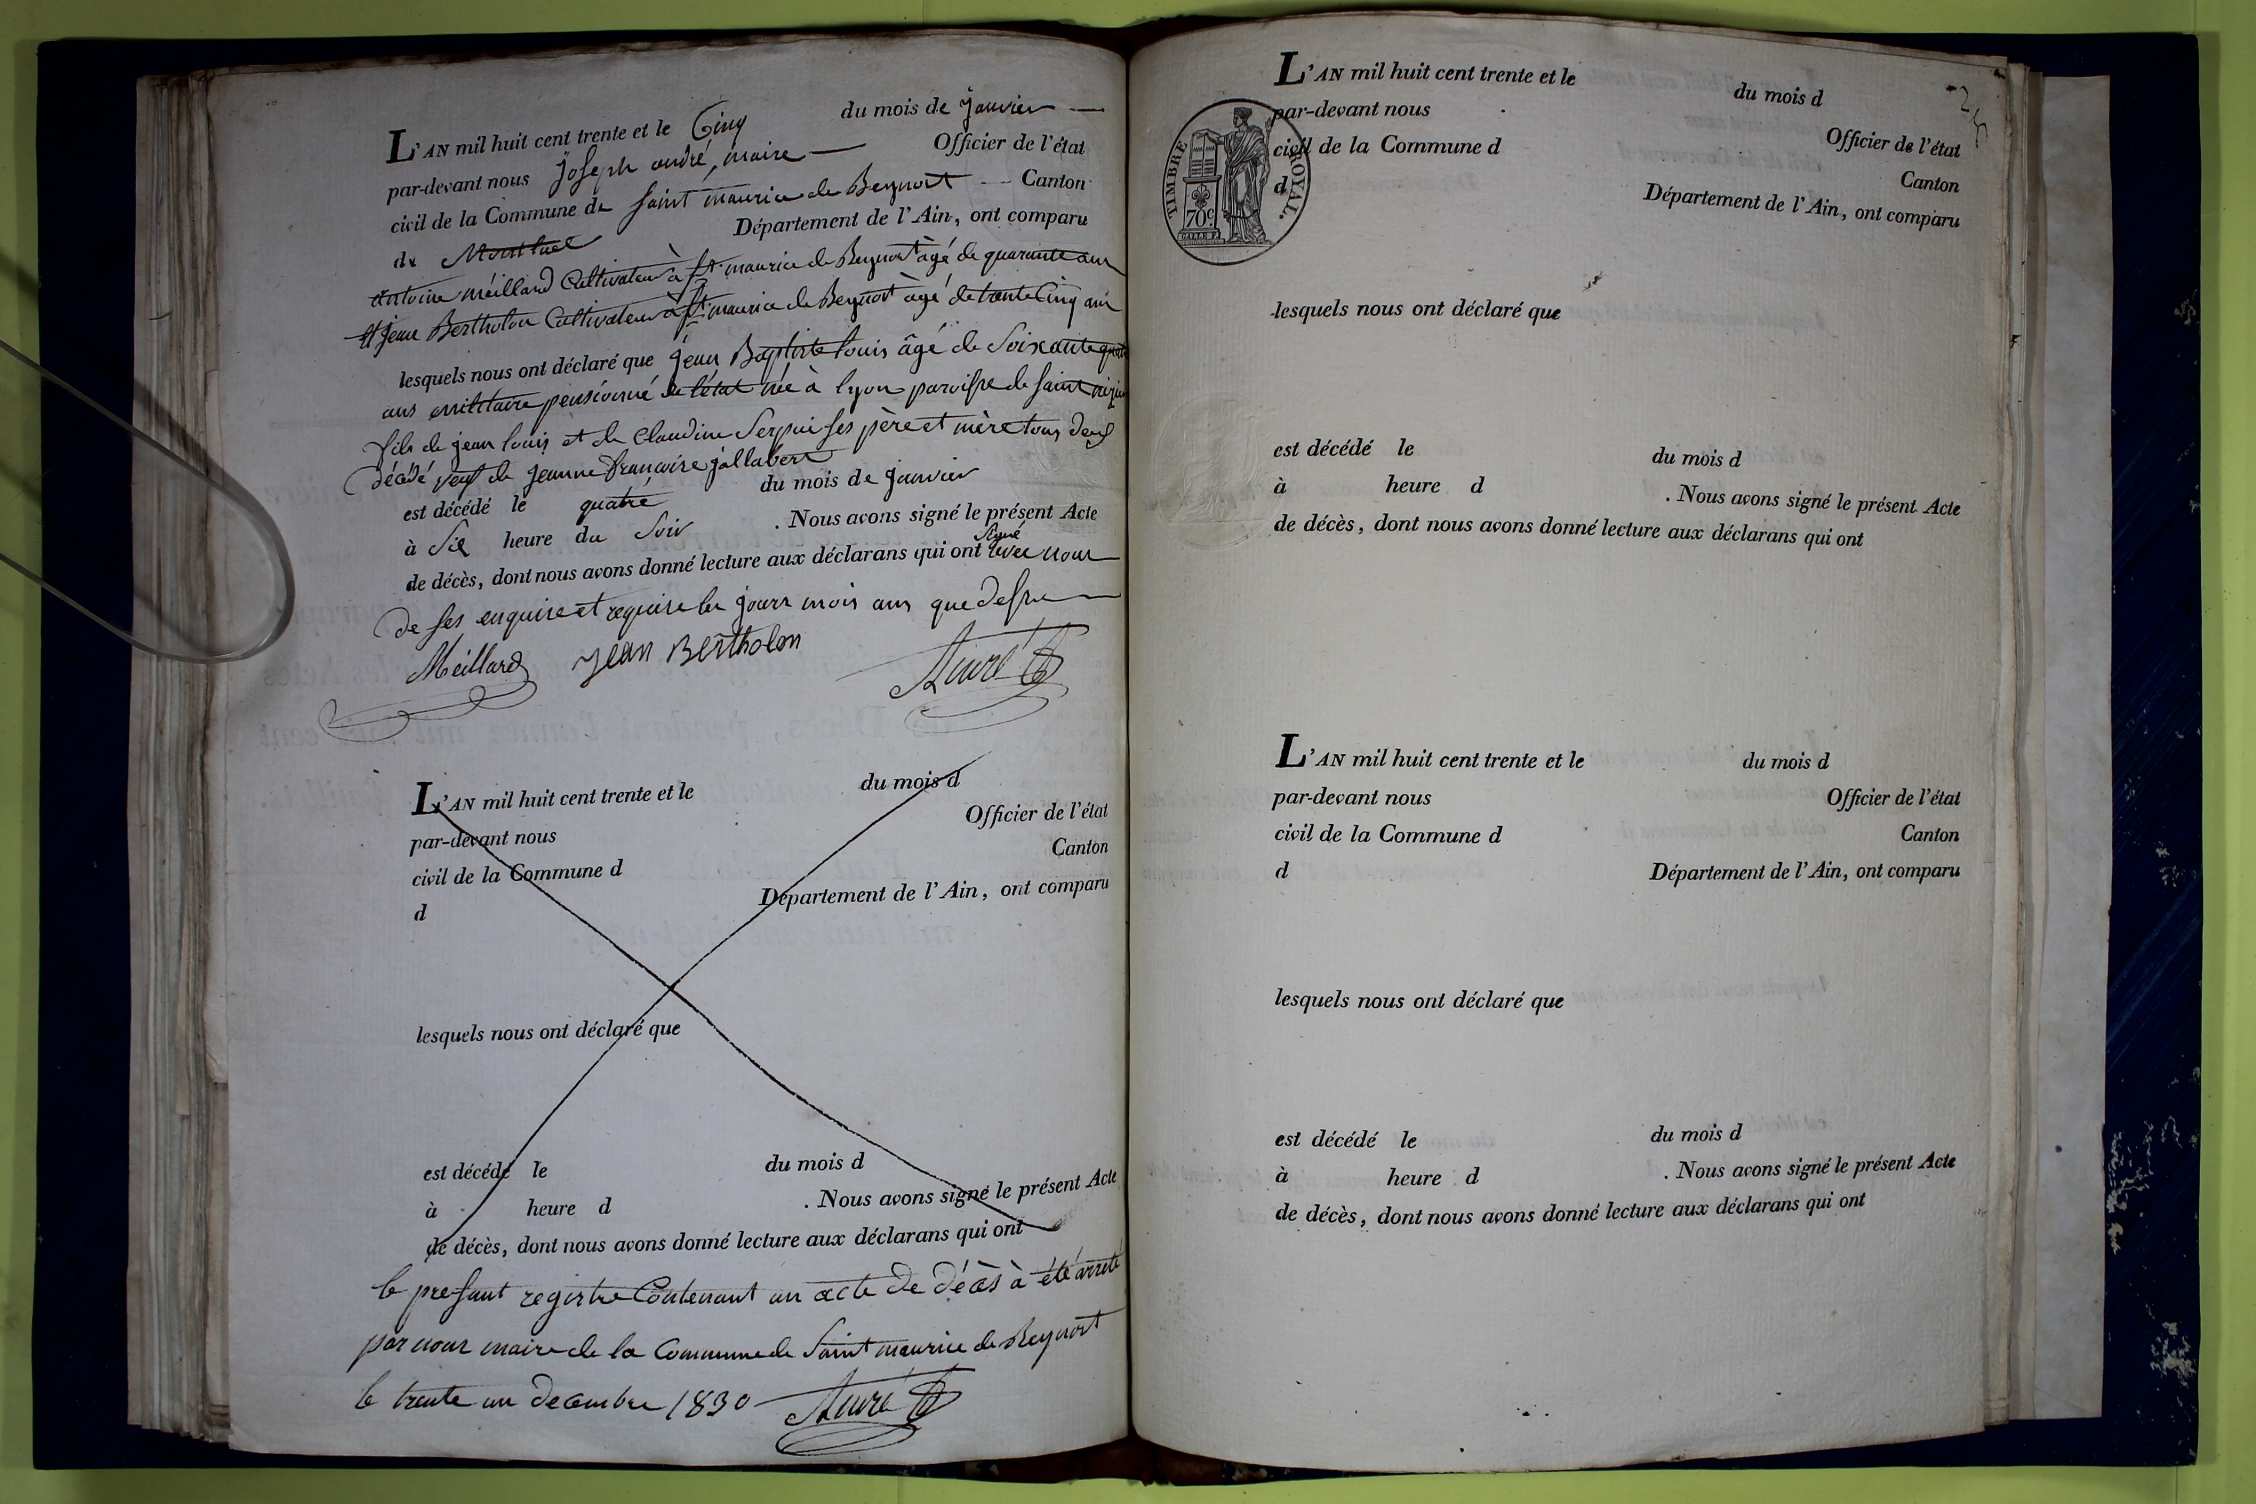 L'AN mil huit cent trente et le Cinq du mois de janvier
par-devant nous joseph andré, maire Officier de l'état
civil de la Commune de saint maurice de Beynost Canton
de Montluel Département de l'Ain, ont comparu
antoine méilland Cultivateur à st maurice de Beynost âgé de quarante ans
et jean Bertholon Cultivateur à st maurice de Beynost âgé de trente Cinq ans
lesquels nous ont déclaré que jean Baptiste louis âgé de Soixante quatre
ans militaire pensionné de l'état née à lyon paroisse de saint nizier
fils de jean louis et de Claudine ses père et mère tous deux
décédé de jeanne françoise jallabert
est décédé le quatre du mois de janvier
à Six heure du Soir . Nous avons signé le présent Acte
de décès, dont nous avons donné lecture aux déclarans qui ont signé avec nous
de ses enquise et requise les jours mois ans que dessus
Méilland jean Bertholon André
L'AN mil huit cent trente et le du mois d
par-devant nous Officier de l'état
civil de la Commune d Canton
d Département de l'Ain, ont comparu
lesquels nous ont déclaré que
est décédé le du mois d
à heure d . Nous avons signé le présent Acte
de décès, dont nous avons donné lecture aux déclarans qui ont
le present registre Contenant un acte de décès à été arrêté
par nous maire de la Commune de Saint maurice de Beynost
le trente un decembre 1830 André
2
L'AN mil huit cent trente et le du mois d
par-devant nous Officier de l'état
civil de la Commune d Canton
d Département de l'Ain, ont comparu
TIMBRE ROYAL.
70c
lesquels nous ont déclaré que
est décédé le du mois d
à heure d . Nous avons signé le présent Acte
de décès, dont nous avons donné lecture aux déclarans qui ont
L'AN mil huit cent trente et le du mois d
par-devant nous Officier de l'état
civil de la Commune d Canton
d Département de l'Ain, ont comparu
lesquels nous ont déclaré que
est décédé le du mois d
à heure d . Nous avons signé le présent Acte
de décès, dont nous avons donné lecture aux déclarans qui ont